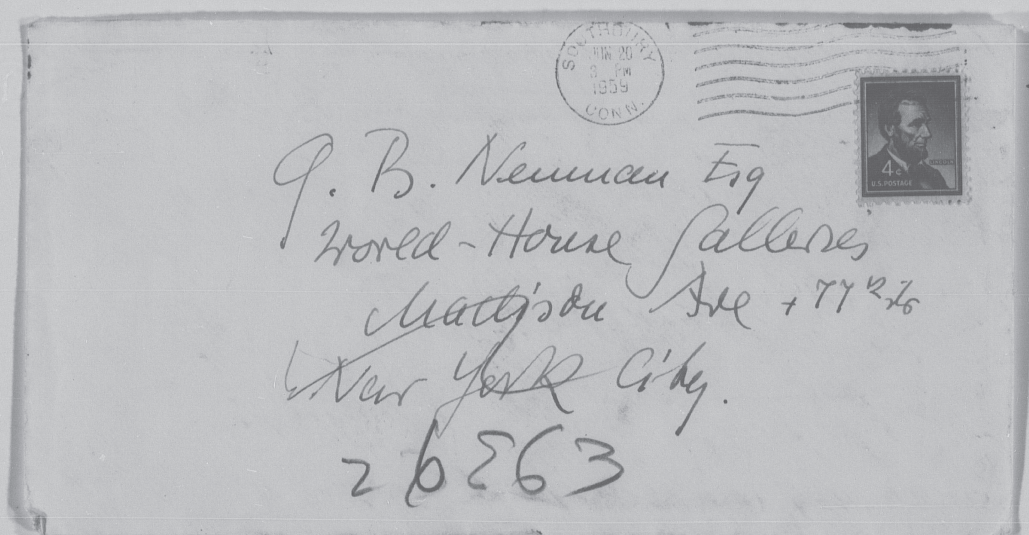 SOUTHBURY
JUN 20
PM
1959
CONN.
LINCOLN
4c
U.S. POSTAGE
J. B. Neuman Esq
World-House Galleries
Madison Ave + 77
New York City.